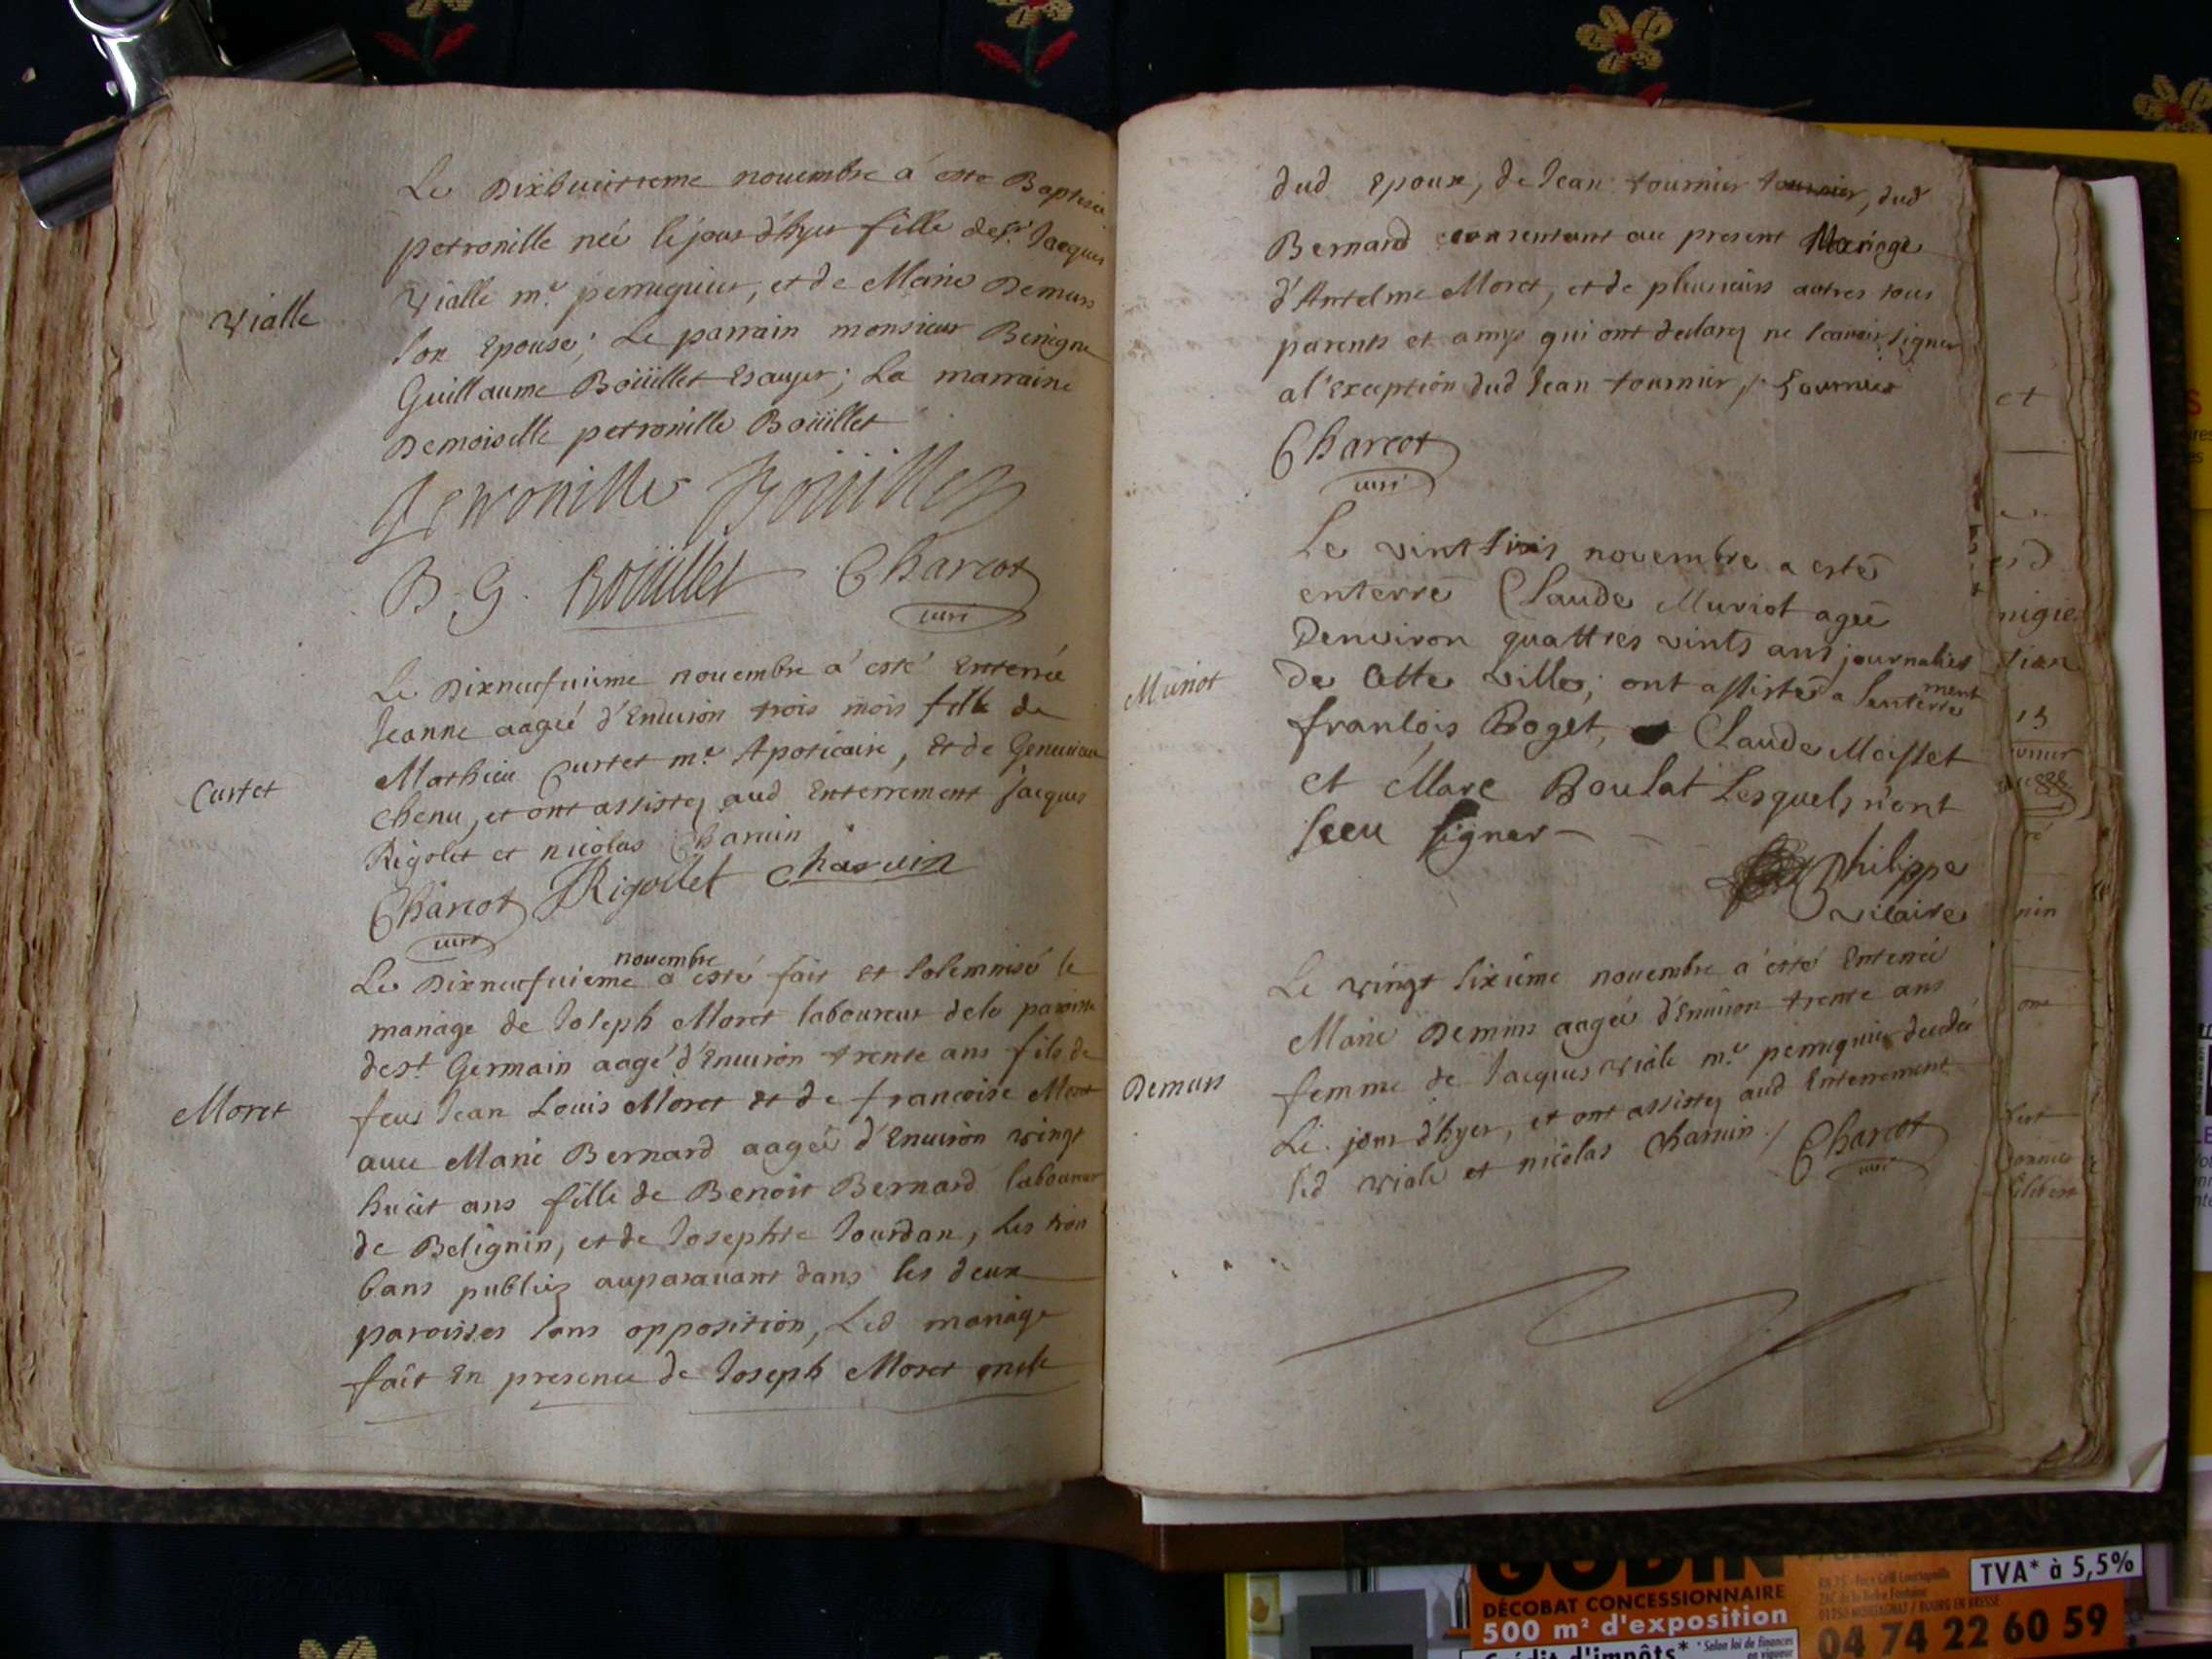 Le Dixhuictieme nouembre a esté Baptisée
petronille née le jour d'hyer fille de Sr. Jacques
Vialle
Vialle me. perruquier, et de Marie Demurs
son Epouse; Le parrain monsieur Benigne
Guillaume Boüillet Esauyer; La marraine
Demoiselle petronille Boüillet
petronille Boüillet
B. G. Boüillet Charcot
curé
Le Dixneufuieme nouembre a esté Enterrée
Jeanne aagée d'Enuiron trois mois fille de
Curtet
Mathieu Curtet me. Apoticaire, et de Geneuieue
chenu, et ont assistez aud Enterrement Jacques
Rigolet et nicolas Charuin
Charcot JRigollet charuin
curé
Le Dixneufuieme nouembre a esté fait et solemnisé le
mariage de Joseph Moret laboureur de la paroisse
de st. Germain aagé d'Enuiron trente ans fils de
Moret
feus Jean Louis Moret et de francoise Moret
auec Marie Bernard aagée d'Enuiron vingt
huict ans fille de Benoit Bernard laboureur
de Belignin, et de Josephte Jourdan, Les trois
bans publiez auparauant dans les deux
paroisses sans opposition, Led mariage
fait En presence de Joseph Moret oncle
dud Epoux, de Jean tournier tournier, dud
Bernard consentant au present Mariage
d'Antelme Moret, et de plusieurs autres tous
parents et amys qui ont declarez ne scauoir signer
a l'Exception dud Jean tournier /. tournier
Charcot
curé
Le vintsixis nouembre a esté
enterré Claude Muriot agée
Denuiron quattres vints ans journalier
Muriot
de Cette Ville; ont assistés a Lenterrement
francois Roget, Claude Moisset
et Marc Boulat Lesquels n'ont
sceu signer
Philippe
vicaire
Le vingt sixième nouembre a esté Enterrée
Marie Demurs aagée d'Enuiron trente ans
Demurs
femme de Jacques Viale me. perruquier decedée
Le jour d'hyer, et ont assistez aud Enterrement
led viale et nicolas Charuin / Charcot
curé
et
nigie
nin
GODIN
DÉCOBAT CONCESSIONNAIRE
500 m² d'exposition
Crédit d'impôts* * Salon loi de finances
en vigueur
TVA* à 5,5%
04 74 22 60 59